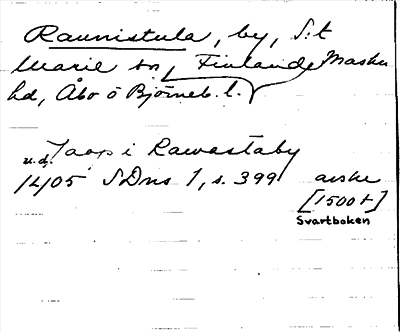 Raunistula, by, S:t
Marie sn, Finland, Masku
hd, Åbo o Björneb. l.
u.d. Jaap i Rawastaby
1405 SDns 1, s. 399 avskr
[1500 t]
Svartboken